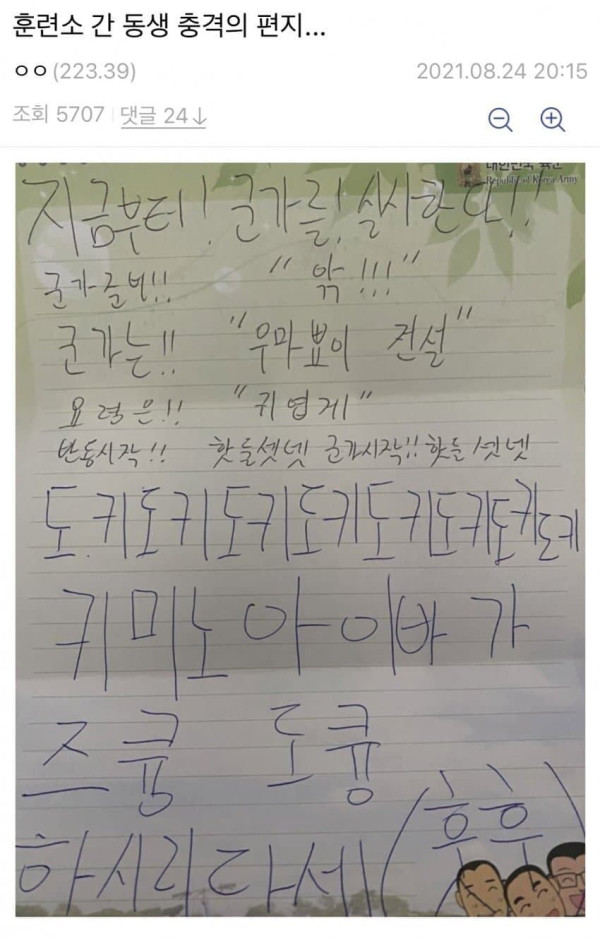 훈련소 간 동생 충격의 편지...
ㅇㅇ(223.39)
2021.08.24 20:15
조회 5707
댓글 24↓
대한민국 육군
Republic of Korea Army
지금부터! 군가를! 실시한다!!
군가준비!! "악!!!"
군가는!! "우마뾰이 전설"
요령은!! "귀엽게"
반동시작!! 핫둘셋넷 군가시작!! 핫둘셋넷
도키도키도키도키도키도키도키도키
키미노아이바가
즈큥 도큥
하시리다세 (후후)